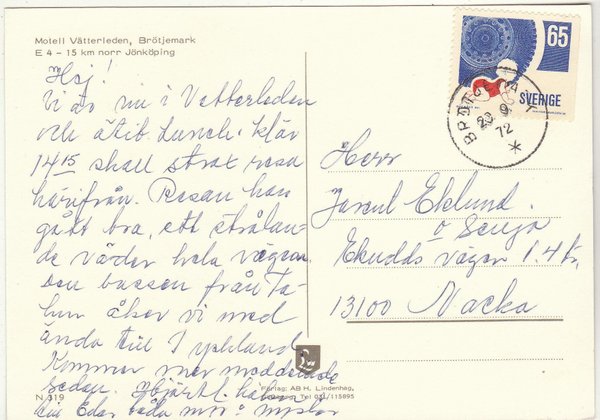 Motell Vätterleden, Brötjemark
E 4 – 15 km norr Jönköping
Hej!
Vi är nu i Vetterleden
och ätit Lunch. klar
14 15 skall strax resa
härifrån. Resan har
gått bra, ett strålan-
de väder hela vägen
den bussen från Ta-
hun åker vi med
ända till Tyskland
Kommer mer meddelande
sedan. Hjärtl. hälsn.
till Eder båda
N 319
65
SVERIGE
23 9
72
Herr
Eklund.
o Senja
Ekudds vägen 1. 4 tr.
13100 Nacka
Förlag: AB H. Lindenhag,
Tel 031/115895